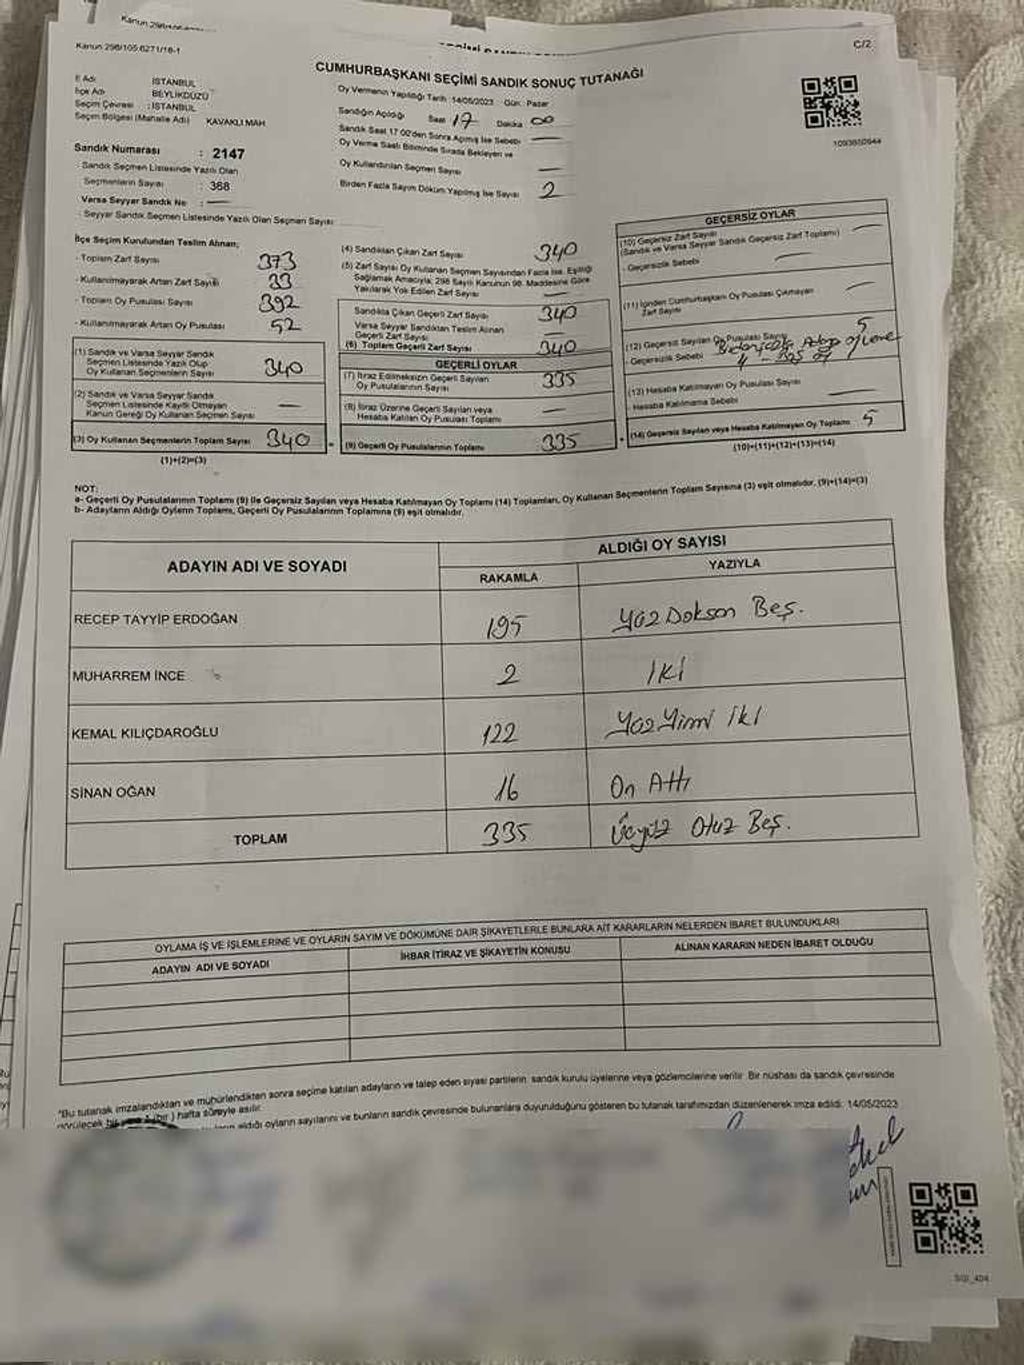 Kanun 298/105.6271/16-1
C/2
CUMHURBAŞKANI SEÇİMİ SANDIK SONUÇ TUTANAĞI
İl Adı : İSTANBUL
İlçe Adı : BEYLİKDÜZÜ
Seçim Çevresi : İSTANBUL
Seçim Bölgesi (Mahalle Adı) KAVAKLI MAH.
Sandık Numarası : 2147
Sandık Seçmen Listesinde Yazılı Olan
Seçmenlerin Sayısı : 368
Varsa Seyyar Sandık No : —
Seyyar Sandık Seçmen Listesinde Yazılı Olan Seçmen Sayısı
Oy Vermenin Yapıldığı Tarih :14/05/2023 Gün: Pazar
Sandığın Açıldığı Saat 17 Dakika 00
Sandık Saat 17.00'den Sonra Açılmış İse Sebebi —
Oy Verme Saati Bitiminde Sırada Bekleyen ve
Oy Kullandırılan Seçmen Sayısı —
Birden Fazla Sayım Döküm Yapılmış İse Sayısı 2
1093650944
İlçe Seçim Kurulundan Teslim Alınan;
- Toplam Zarf Sayısı 373
- Kullanılmayarak Artan Zarf Sayısı 33
- Toplam Oy Pusulası Sayısı 392
- Kullanılmayarak Artan Oy Pusulası 52
(1) Sandık ve Varsa Seyyar Sandık
Seçmen Listesinde Yazılı Olup
Oy Kullanan Seçmenlerin Sayısı 340
(2) Sandık ve Varsa Seyyar Sandık
Seçmen Listesinde Kayıtlı Olmayan
Kanun Gereği Oy Kullanan Seçmen Sayısı —
(3) Oy Kullanan Seçmenlerin Toplam Sayısı 340
(1)+(2)=(3)
(4) Sandıktan Çıkan Zarf Sayısı 340
(5) Zarf Sayısı Oy Kullanan Seçmen Sayısından Fazla İse, Eşitliği
Sağlamak Amacıyla; 298 Sayılı Kanunun 98. Maddesine Göre
Yakılarak Yok Edilen Zarf Sayısı —
Sandıkta Çıkan Geçerli Zarf Sayısı 340
Varsa Seyyar Sandıktan Teslim Alınan
Geçerli Zarf Sayısı —
(6) Toplam Geçerli Zarf Sayısı 340
GEÇERLİ OYLAR
(7) İtiraz Edilmeksizin Geçerli Sayılan
Oy Pusulalarının Sayısı 335
(8) İtiraz Üzerine Geçerli Sayılan veya
Hesaba Katılan Oy Pusulası Toplamı —
(9) Geçerli Oy Pusulalarının Toplamı 335
GEÇERSİZ OYLAR
(10) Geçersiz Zarf Sayısı
(Sandık ve Varsa Seyyar Sandık Geçersiz Zarf Toplamı) —
- Geçersizlik Sebebi —
(11) İçinden Cumhurbaşkanı Oy Pusulası Çıkmayan
Zarf Sayısı —
(12) Geçersiz Sayılan Oy Pusulası Sayısı 5
Geçersizlik Sebebi
(13) Hesaba Katılmayan Oy Pusulası Sayısı
Hesaba Katılmama Sebebi
(14) Geçersiz Sayılan veya Hesaba Katılmayan Oy Toplamı 5
(10)+(11)+(12)+(13)=(14)
NOT:
a- Geçerli Oy Pusulalarının Toplamı (9) ile Geçersiz Sayılan veya Hesaba Katılmayan Oy Toplamı (14) Toplamları, Oy Kullanan Seçmenlerin Toplam Sayısına (3) eşit olmalıdır. (9)+(14)=(3)
b- Adayların Aldığı Oyların Toplamı, Geçerli Oy Pusulalarının Toplamına (9) eşit olmalıdır.
ADAYIN ADI VE SOYADI ALDIĞI OY SAYISI
RAKAMLA YAZIYLA
RECEP TAYYİP ERDOĞAN 195 Yüz Doksan Beş.
MUHARREM İNCE 2 İki
KEMAL KILIÇDAROĞLU 122 Yüz Yirmi İki
SİNAN OĞAN 16 On Altı
TOPLAM 335 Üçyüz Otuz Beş.
OYLAMA İŞ VE İŞLEMLERİNE VE OYLARIN SAYIM VE DÖKÜMÜNE DAİR ŞİKAYETLERLE BUNLARA AİT KARARLARIN NELERDEN İBARET BULUNDUKLARI
ADAYIN ADI VE SOYADI İHBAR İTİRAZ VE ŞİKAYETİN KONUSU ALINAN KARARIN NEDEN İBARET OLDUĞU
*Bu tutanak imzalandıktan ve mühürlendikten sonra seçime katılan adayların ve talep eden siyasi partilerin, sandık kurulu üyelerine veya gözlemcilerine verilir. Bir nüshası da sandık çevresinde
görülecek bir yere 1 (bir) hafta süreyle asılır.
aldığı oyların sayılarını ve bunların sandık çevresinde bulunanlara duyurulduğunu gösteren bu tutanak tarafımızdan düzenlenerek imza edildi. 14/05/2023